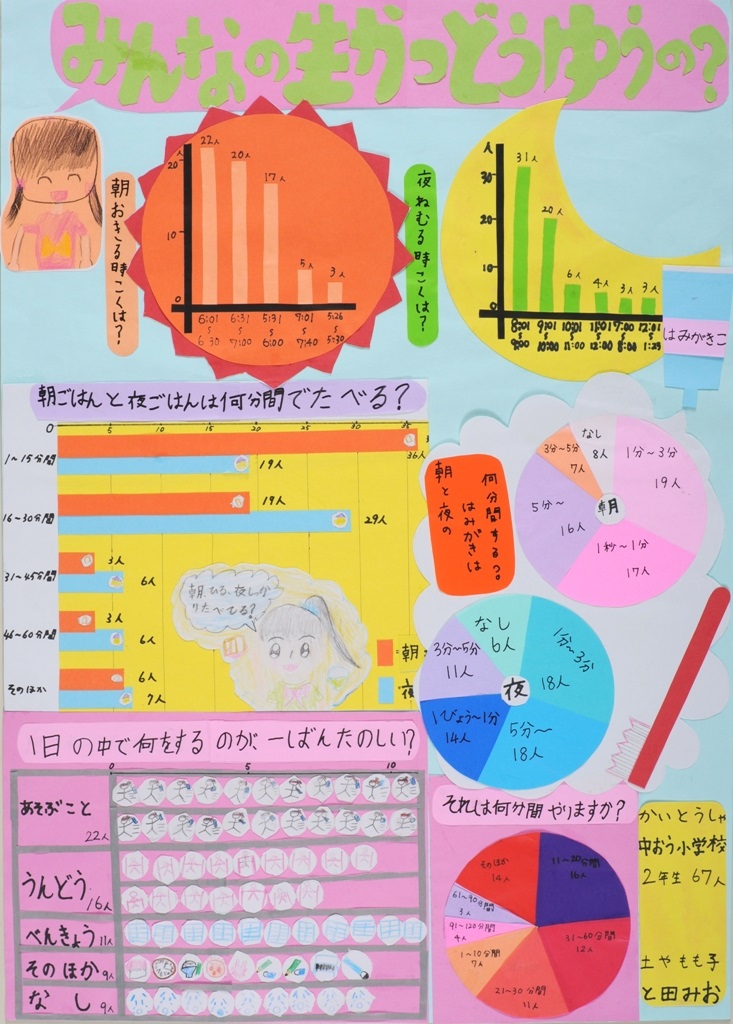 みんなの生かつどうゆうの?
朝おきる時こくは?
人
20
10
0
22人
20人
17人
5人
3人
6:01
S
6:30
6:31
S
7:00
5:31
S
6:00
7:01
S
7:40
5:26
S
5:30
夜ねむる時こくは?
人
30
20
10
0
31人
20人
6人
4人
3人
3人
8:01
S
9:00
9:01
S
10:00
10:01
S
11:00
11:01
S
12:00
7:00
S
8:00
12:01
S
はみがきこ
朝ごはんと夜ごはんは何分間でたべる?
0
5
10
15
20
25
30
35
1~15分間
36人
19人
16~30分間
19人
29人
31~45分間
3人
6人
46~60分間
3人
6人
そのほか
6人
7人
朝、ひる、夜しっか
りたべてる?
=朝
=夜
朝と夜の
はみがきは
何分間する?
朝
1分~3分
19人
1秒~1分
17人
5分~
16人
3分~5分
7人
なし
8人
夜
1分~3分
18人
5分~
18人
1びょう~1分
14人
3分~5分
11人
なし
6人
1日の中で何をするのが一ばんたのしい?
0
5
10
あそぶこと
22人
うんどう
16人
べんきょう 11人
そのほか 9人
なし 9人
それは何分間やりますか?
11~20分間
16人
31~60分間
12人
21~30分間
11人
1~10分間
7人
91~120分間
4人
61~90分間
3人
そのほか
14人
かいとうしゃ
中おう小学校
2年生 67人
土やもも子
と田みお